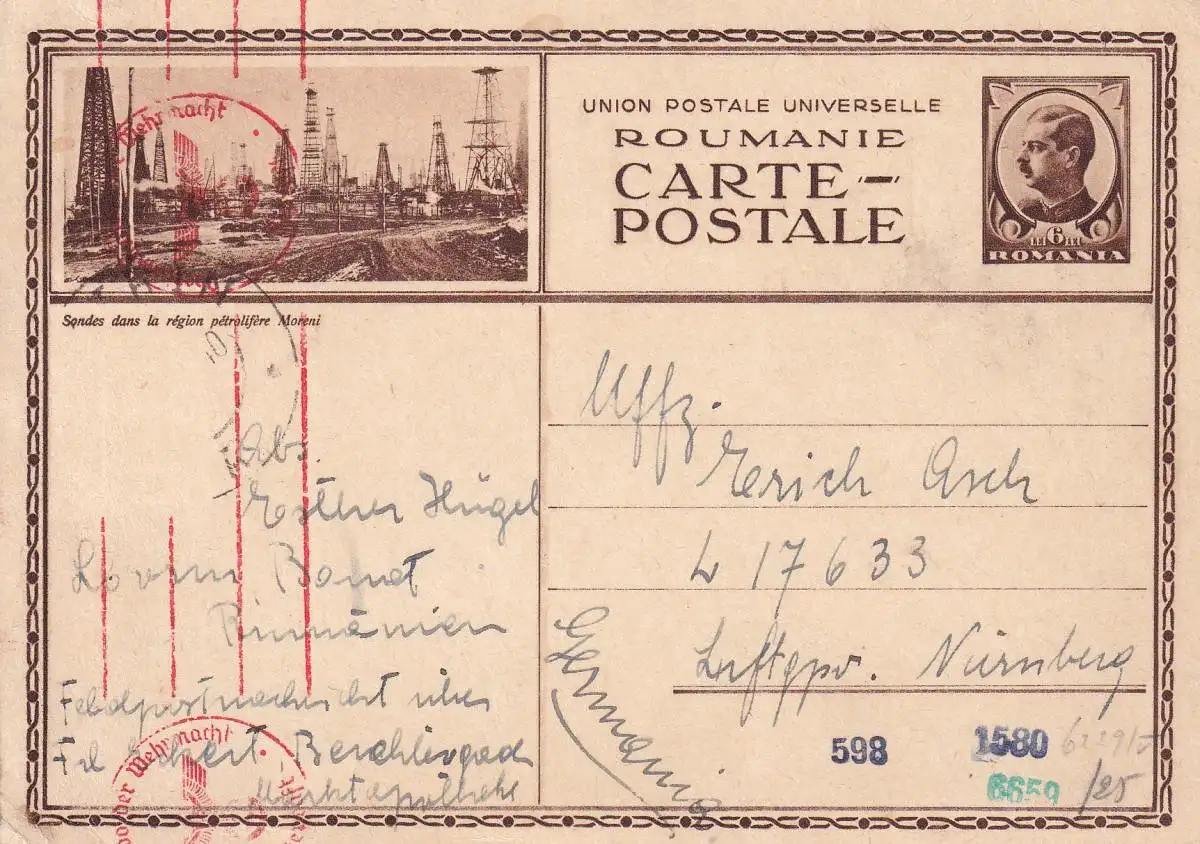 UNION POSTALE UNIVERSELLE
ROUMANIE
CARTE-
POSTALE
LEI 6 LEI
ROMANIA
Wehrmacht
Sondes dans la région pétrolifère Moreni
Uffz.
Erich Asch
L 17633
Luftgpo. Nürnberg
Germania
Abs.
Esther Hügel
Lovrin Banat
Rumänien
Feldpostnachricht über
Frl Berchtesgaden
Marktapotheke
der Wehrmacht
598
1580
6659
/25